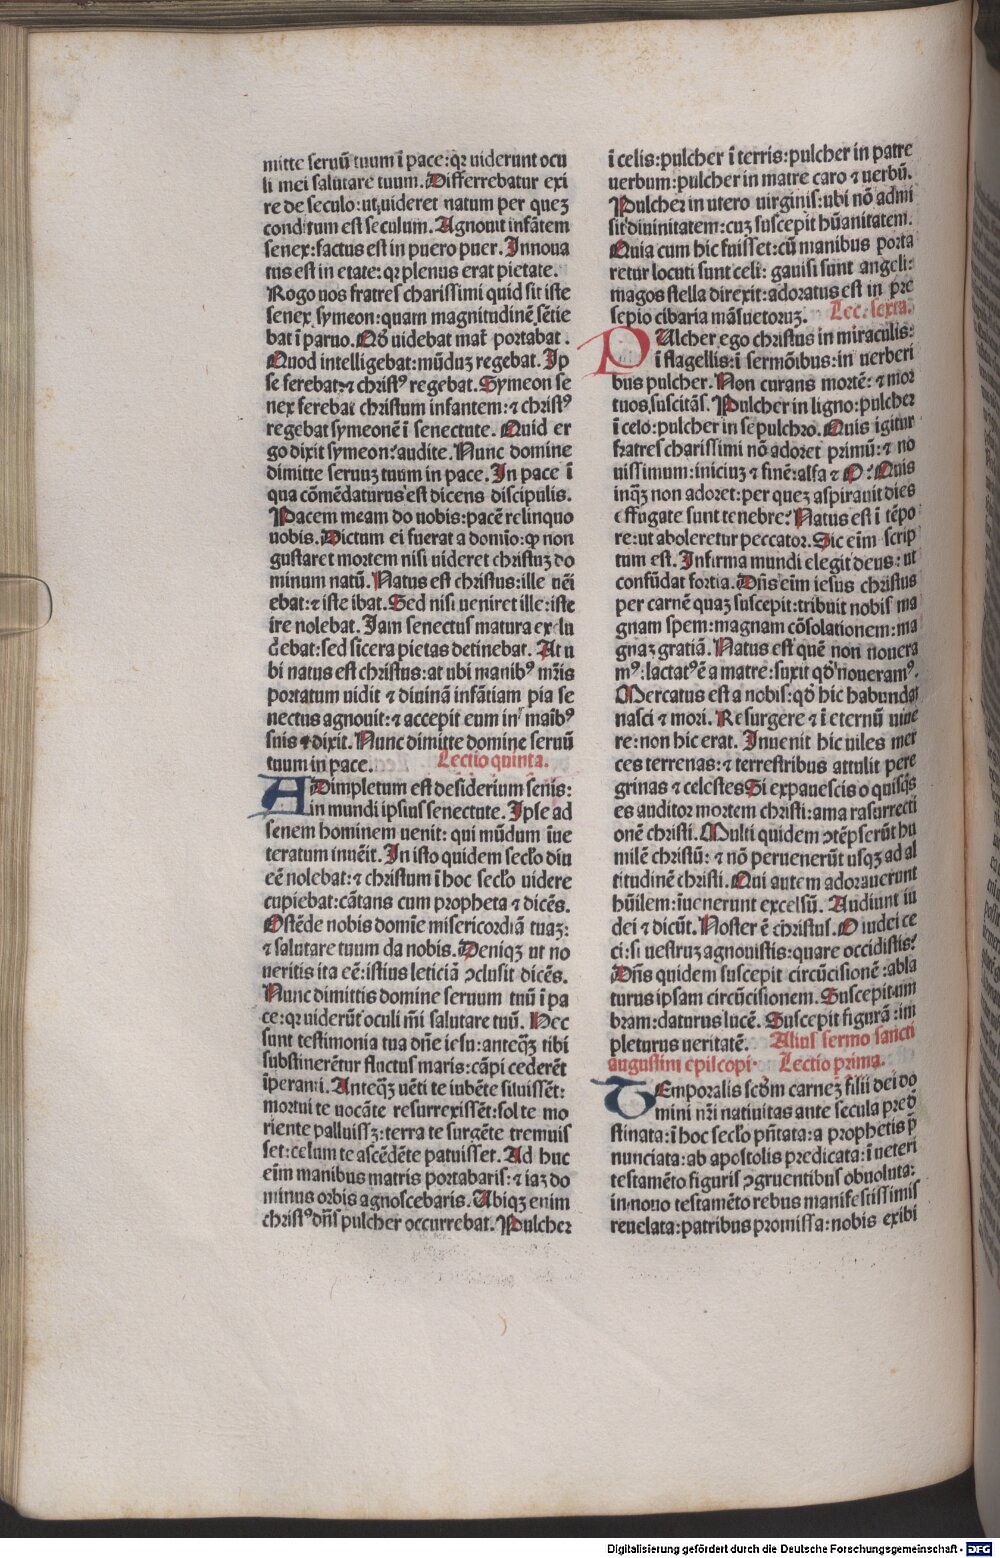 mitte seruū tuum ī pace:qꝛ uiderunt ocu
li mei salutare tuum.Differrebatur exi
re de seculo:ut uideret natum per quez
conditum est seculum.Agnouit infātem
senex:factus est in puero puer.Innoua
tus est in etate:qꝛ plenus erat pietate.
Rogo uos fratres charissimi quid sit iste
senex symeon:quam magnitudinē sētie
bat ī paruo.Qd̄ uidebat mat̄ portabat.
Quod intelligebat:mūduz regebat.Ip
se ferebat:⁊ christꝰ regebat.Symeon se
nex ferebat christum infantem:⁊ christꝰ
regebat symeonē ī senectute.Quid er
go dixit symeon?audite.Nunc domine
dimitte seruuz tuum in pace.In pace ī
qua cōmēdaturus est dicens discipulis.
Pacem meam do uobis:pacē relinquo
uobis.Dictum ei fuerat a domīo:ꝙ non
gustaret mortem nisi uideret christuz do
minum natū.Natus est christus:ille uēi
ebat:⁊ iste ibat.Sed nisi ueniret ille:iste
ire nolebat.Iam senectus matura exclu
debat:sed sicera pietas detinebat.At u
bi natus est christus:at ubi manibꝰ mr̄is
portatum uidit ⁊ diuinā infātiam pia se
nectus agnouit:⁊ accepit eum in maībꝰ
suis ⁊ dixit.Nunc dimitte domine seruū
tuum in pace. Lectio quinta.
ADimpletum est desiderium senis:
in mundi ipsius senectute.Ipse ad
senem hominem uenit:qui mūdum īue
teratum inuēit.In isto quidem secl̄o diu
eē nolebat:⁊ christum ī hoc secl̄o uidere
cupiebat:cātans cum propheta ⁊ dicēs.
Ostēde nobis domīe misericordiā tuaz:
⁊ salutare tuum da nobis.Deniqꝫ ut no
ueritis ita eē:istius leticiā ꝯclusit dicēs.
Nunc dimittis domine seruum tuū ī pa
ce:qꝛ uiderūt oculi mī salutare tuū. Hec
sunt testimonia tua dn̄e iesu:anteqꝫ tibi
substinerētur fluctus maris:cāpi cederēt
īperanti.Anteqꝫ uēti te iubēte siluissēt:
mortui te uocāte resurrexissēt:sol te mo
riente palluissꝫ:terra te surgēte tremuis
set:celum te ascēdēte patuisset.Ad huc
eīm manibus matris portabaris:⁊ iaz do
minus orbis agnoscebaris.Ubiqꝫ enim
christꝰ dn̄s pulcher occurrebat.Pulcher
ī celis:pulcher ī terris:pulcher in patre
uerbum:pulcher in matre caro ⁊ uerbū.
Pulcher in utero uirginis:ubi nō admi
sit diuinitatem:cuz suscepit hūanitatem.
Quia cum hic fuisset:cū manibus porta
retur locuti sunt celi: gauisi sunt angeli:
magos stella direxit:adoratus est in pre
sepio cibaria māsuetoruz. Lec. sexta.
PUlcher ego christus in miraculis:
ī flagellis:ī sermōibus:in uerberi
bus pulcher.Non curans mortē: ⁊ mor
tuos suscitās.Pulcher in ligno:pulcher
ī celo:pulcher in sepulchro.Quis igitur
fratres charissimi nō adoret primū:⁊ no
uissimum:iniciuz ⁊ finē:alfa ⁊ O?Quis
inqꝫ non adoret:per quez aspirauit dies
effugate sunt tenebre?Natus est ī tēpo
re:ut aboleretur peccator.Sic eīm scrip
tum est.Infirma mundi elegit deus:ut
confūdat fortia.Dn̄s eīm iesus christus
per carnē quaz suscepit:tribuit nobis ma
gnam spem:magnam cōsolationem:ma
gnaz gratiā.Natus est quē non nouera
mꝰ:lactatꝰ ē a matre:suxit qd̄ noueramꝰ.
Mercatus est a nobis:qd̄ hic habundat
nasci ⁊ mori.Resurgere ⁊ ī eternū uiue
re:non hic erat.Inuenit hic uiles mer
ces terrenas:⁊ terrestribus attulit pere
grinas ⁊ celestes Si expauescis o quisqꝫs
es auditor mortem christi:ama rasurrecti
onē christi.Multi quidem ꝯtēpserūt hu
milē christū: ⁊ nō peruenerūt usqꝫ ad al
titudinē christi.Qui autem adorauerunt
hūilem:īuenerunt excelsū.Audiunt iu
dei ⁊ dicūt.Noster ē christus.O iudei ce
ci:si uestruz agnouistis:quare occidistis?
Dn̄s quidem suscepit circūcisionē:abla
turus ipsam circūcisionem.Suscepit um
bram:daturus lucē.Suscepit figurā:im
pleturus ueritatē. Alius sermo sancti
augustini episcopi. Lectio prima.
TEmporalis scd̄m carnez filii dei do
mini nr̄i natiuitas ante secula pred̄
stinata:ī hoc secl̄o pn̄tata:a prophetis p̄
nunciata:ab apostolis predicata:ī ueteri
testamēto figuris ꝯgruentibus obuoluta:
in nouo testamēto rebus manifestissimis
reuelata:patribus promissa:nobis exibi
Digitalisierung gefördert durch die Deutsche Forschungsgemeinschaft - DFG